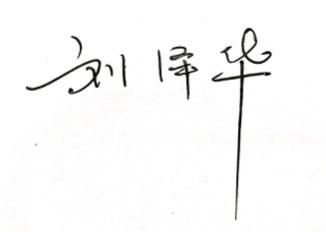 刘泽华